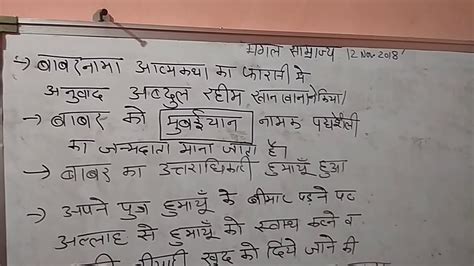 मुगल साम्राज्य 12 Nov-2018'
→ बाबरनामा आत्मकथा का फारसी में
अनुवाद अब्दुल रहीम खानखाना ने किया।
→ बाबर को मुबईयान नामक पद्यशैली
का जन्मदाता माना जाता है।
→ बाबर का उत्तराधिकारी हुमायूँ हुआ
→ अपने पुत्र हुमायूँ के बीमार पड़ने पर
अल्लाह से हुमायूँ को स्वस्थ करने व
बीमारी खुद को दिये जाने की